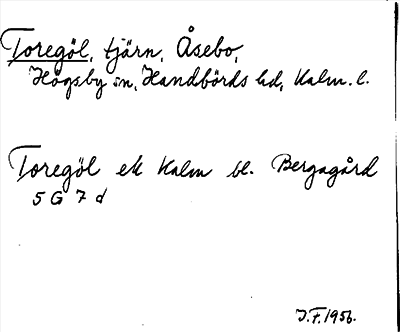 Toregöl, tjärn, Åsebo,
Högsby sn, Handbörds hd, Kalm. l.
Toregöl ek Kalm bl. Bergagård
5 G 7 d
J.F. 1956.